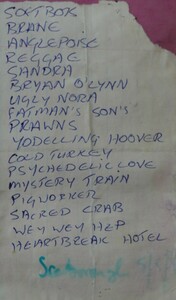 SOFTBOYS
BRANE
ANGLEPOISE
REGGAE
SANDRA
BRYAN O'LYNN
UGLY NORA
FATMAN'S SON'S
PRAWNS
YODELLING HOOVER
COLD TURKEY
PSYCHEDELIC LOVE
MYSTERY TRAIN
PIGWORKER
SACRED CRAB
WEY WEY HEP
HEARTBREAK HOTEL
Scarborough